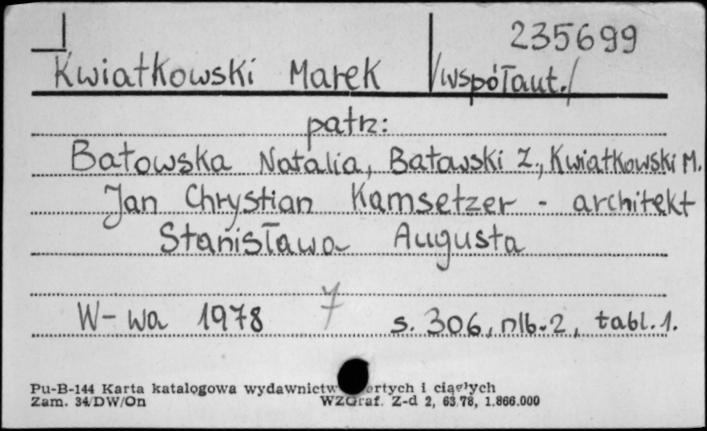 235699
Kwiatkowski Marek /współaut./
patrz:
Batowska Natalia, Batowski Z., Kwiatkowski M.
Jan Chrystian Kamsetzer - architekt
Stanisława Augusta
W-wa 1978 7 s. 306, nlb. 2, tabl. 1.
Pu-B-144 Karta katalogowa wydawnictw i ciągłych
Zam. 34/DW/On WZGraf. Z-d 2, 63.78, 1.866.000